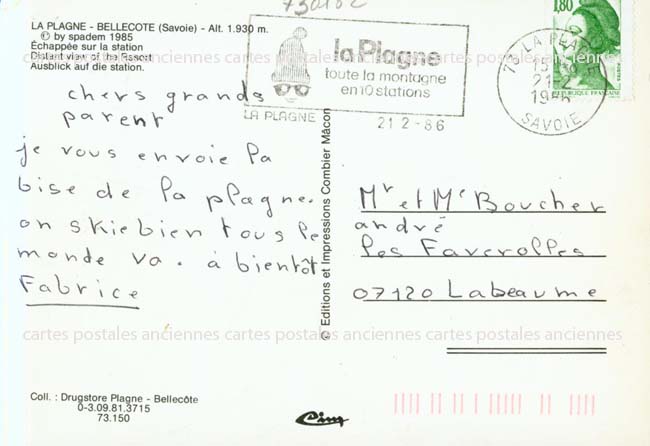 730162
LA PLAGNE - BELLECOTE (Savoie) - Alt. 1.930 m.
© by spadem 1985
Échappée sur la station
Distant view of the Resort
Ausblick auf die station.
la Plagne
toute la montagne
en 10 stations
LA PLAGNE
21 2 - 86
73 LA PLAGNE
15
21-2
1986
SAVOIE
1,80
REPUBLIQUE FRANCAISE
chers grands
parent
je vous envoie la
bise de la plagne.
on skie bien tous le
monde va. à bientôt
Fabrice
© Editions et Impressions Combier Mâcon
Mr et Me Boucher
andré
les Faverolles
07120 Labeaume
cartes postales anciennes cartes postales anciennes cartes postales anciennes
cartes postales anciennes cartes postales anciennes cartes postales anciennes
Coll. : Drugstore Plagne - Bellecôte
0-3.09.81.3715
73.150
Cim